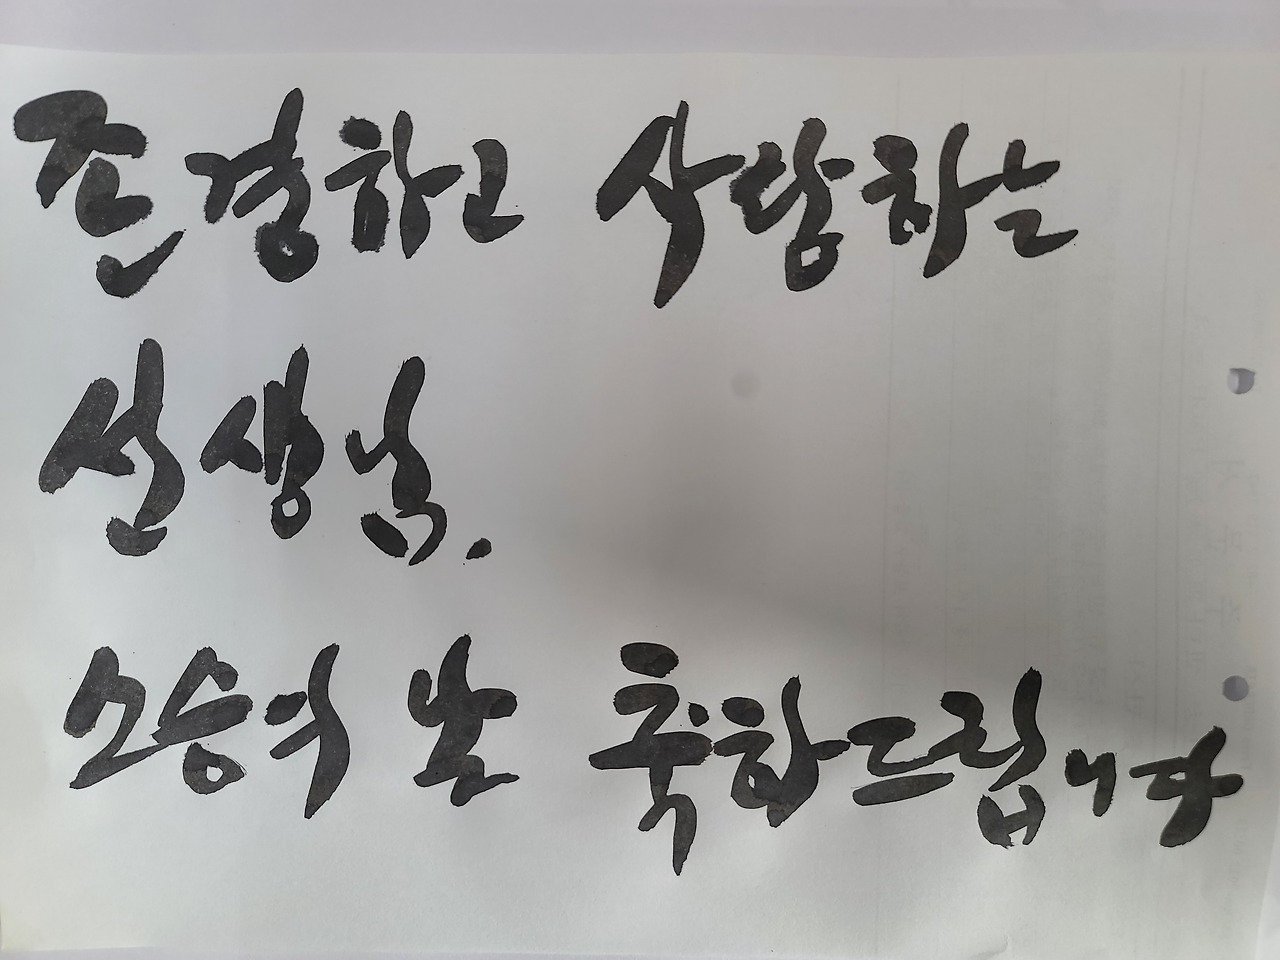 존경하고 사랑하는
선생님.
스승의 날 축하드립니다